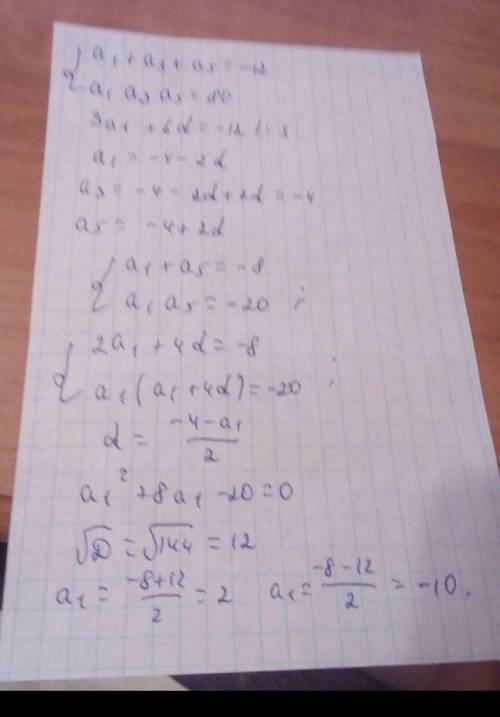 { a₁ + a₃ + a₅ = -12
a₁ a₃ a₅ = 80
3a₁ + 6d = -12 |:3
a₁ = -4 - 2d
a₃ = -4 - 2d + 2d = -4
a₅ = -4 + 2d
{ a₁ + a₅ = -8
a₁ a₅ = -20 ;
{ 2a₁ + 4d = -8
a₁(a₁ + 4d) = -20 ;
d = (-4 - a₁)/2
a₁² + 8a₁ - 20 = 0
√D = √144 = 12
a₁ = (-8+12)/2 = 2 a₁ = (-8-12)/2 = -10.